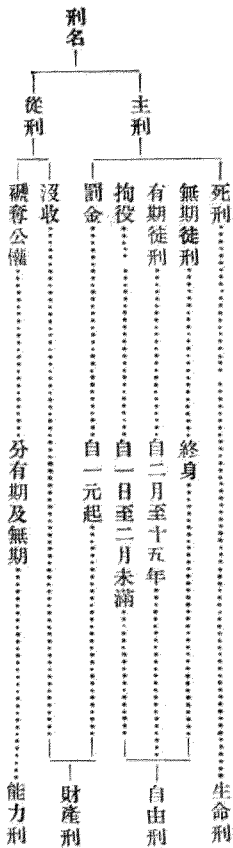 刑名
主刑
從刑
死刑 生命刑
無期徒刑 終身
有期徒刑 自二月至十五年
拘役 自一日至二月未滿
自由刑
罰金 自一元起
沒收
財產刑
褫奪公權 分有期及無期 能力刑